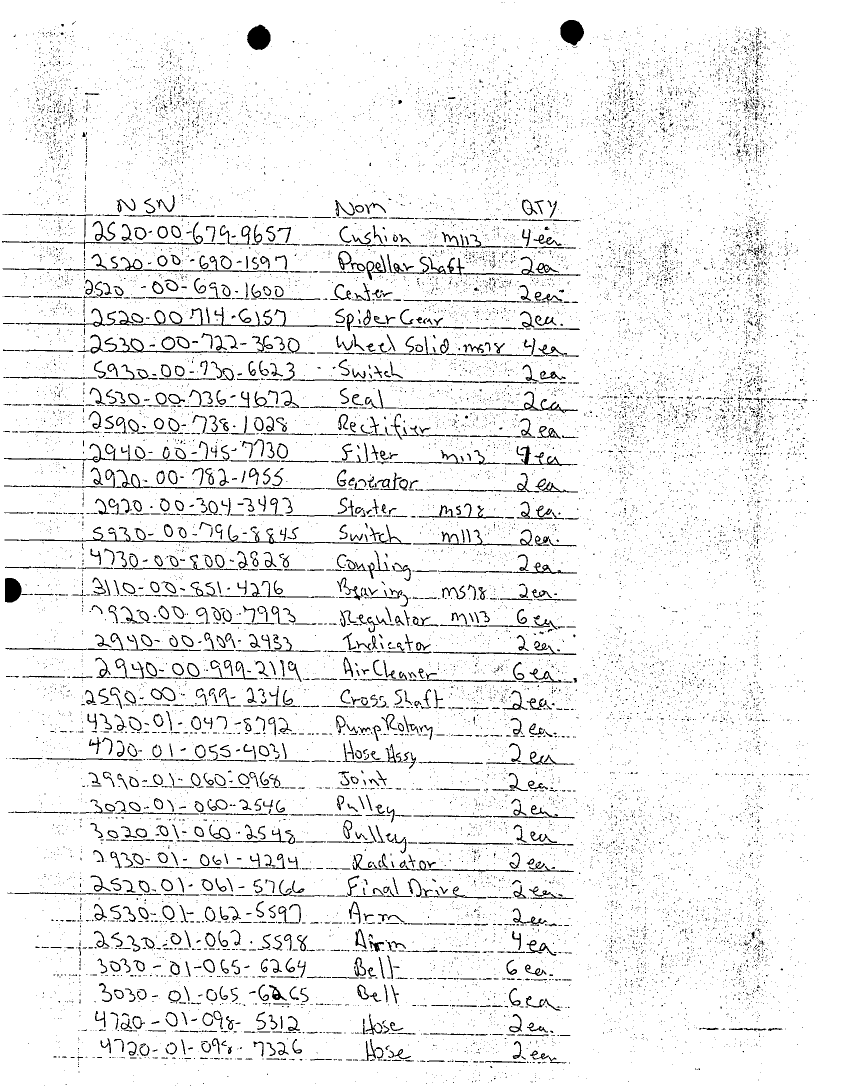 NSN Nom QTY
2520-00-679-9657 Cushion M113 4ea
2520-00-690-1597 Propellar Shaft 2ea
2520-00-690-1600 Center 2ea.
2520-00 714-6157 Spider Gear 2ea.
2530-00-722-3630 Wheel Solid M578 4ea
5930-00-730-6623 Switch 2ea.
2530-00-736-4672 Seal 2ea
2590-00-738-1028 Rectifier 2ea
2940-00-745-7730 Filter M113 4ea
2920-00-782-1955 Generator 2ea.
2920-00-304-3493 Starter M578 2ea.
5930-00-796-8845 Switch M113 2ea.
4730-00-800-2828 Coupling 2ea.
3110-00-851-4276 Bearing M578 2ea.
2920-00-900-7993 Regulator M113 6ea
2940-00-909-2433 Indicator 2ea.
2940-00-999-2119 Air Cleaner 6ea.
2590-00-999-2346 Cross Shaft 2ea.
4320-01-047-8792 Pump Rotary 2ea.
4720-01-055-4031 Hose Assy 2ea
2990-01-060-0968 Joint 2ea.
3020-01-060-2546 Pulley 2ea.
3020 01-060-2548 Pulley 2ea
2930-01-061-4294 Radiator 2ea.
2520-01-061-5766 Final Drive 2ea.
2530-01-062-5597 Arm 2ea
2530-01-062-5598 Arm 4ea
3030-01-065-6264 Belt 6ea.
3030-01-065-6265 Belt 6ea
4720-01-098-5312 Hose 2ea.
4720-01-098-7326 Hose 2ea